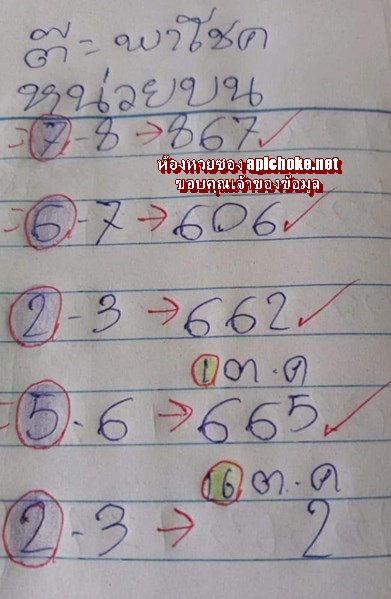 ตี๋ = พาโชค
หน่วยบน
= 7 - 8 → 867 ✓
ห้องหวยซอง apichoke.net
ขอบคุณเจ้าของข้อมูล
= 6 - 7 → 606 ✓
2 - 3 → 662 ✓
1 ต.ค
= 5 - 6 → 665 ✓
16 ต.ค
2 - 3 → 2